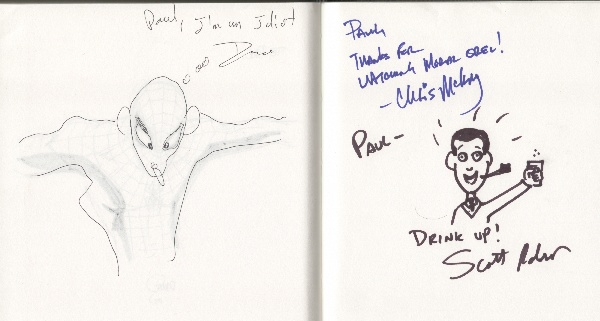 Paul, I'm an Idiot
Paul,
THANKS FOR
WATCHING MORAL OREL!
- Chris McKay
PAUL -
DRINK UP!
Scott